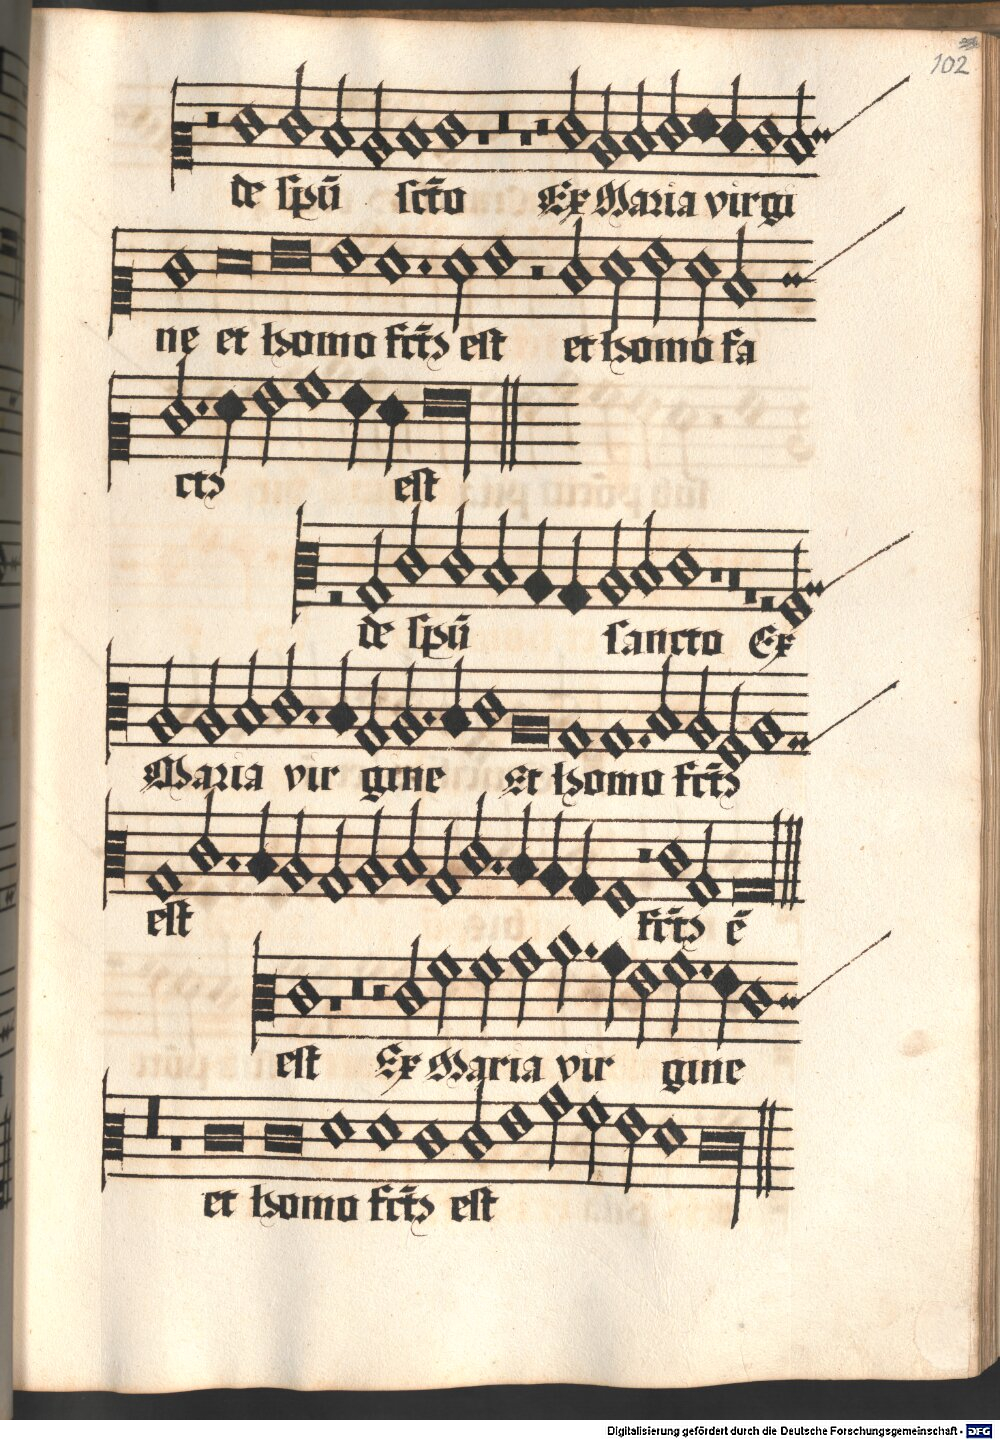 102
de spū sct̄o Ex Maria virgi
ne et homo fct̄9 est et homo fa
ct9 est
de spū sancto Ex
Maria vir gine Et homo fct̄9
est fct̄9 ē
est Ex Maria vir gine
et homo fct̄9 est
Digitalisierung gefördert durch die Deutsche Forschungsgemeinschaft - DFG